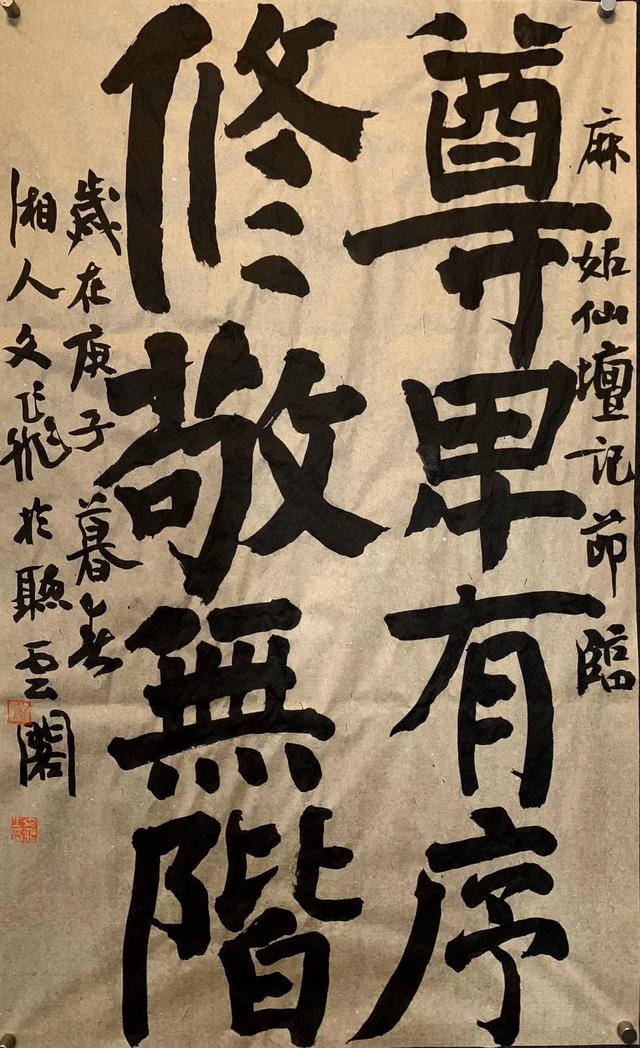 麻姑仙壇記節臨
尊卑有序
修敬無階
歲在庚子暮春
湘人文正飛於聽雲閣